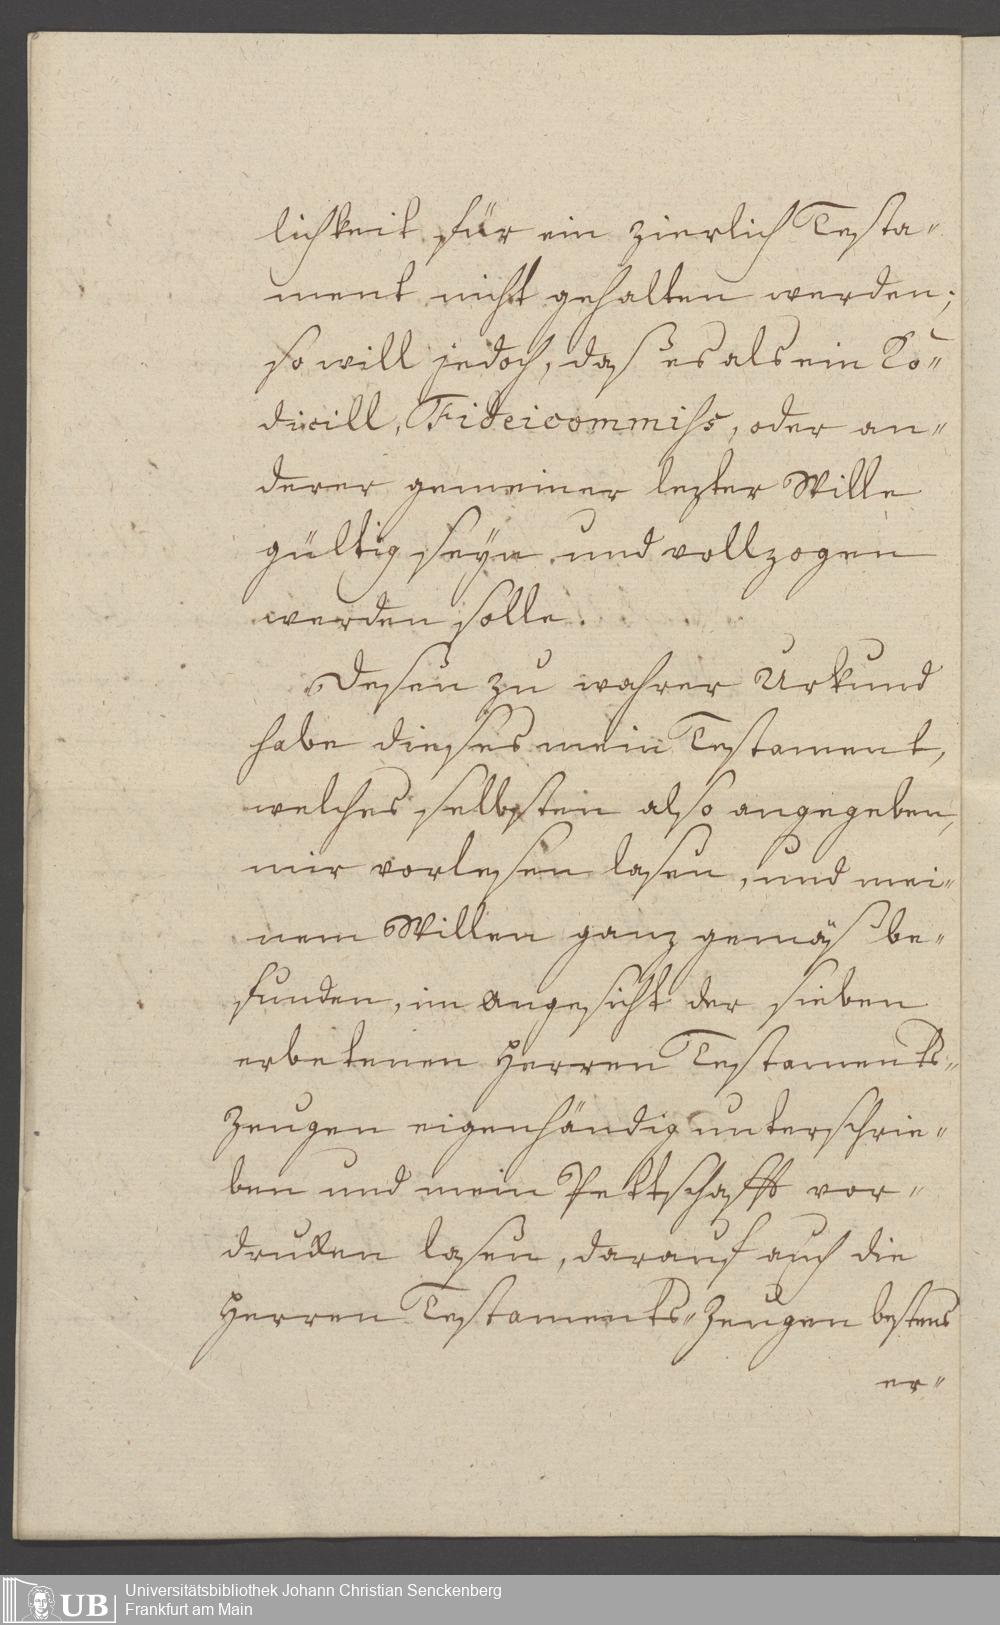 lichkeit für ein zierlich Testa-
ment nicht gehalten werden;
so will jedoch, daß es als ein Co-
dicill, Fideicommiss, oder an-
derer gemeiner lezter Wille
gültig seyn und vollzogen
werden solle.
Deßen zu wahrer Urkund
habe dieses mein Testament,
welches selbsten also angegeben,
mir vorlesen laßen, und mei-
nem Willen ganz gemäß be-
funden, im Angesicht der sieben
erbetenen Herren Testaments-
Zeugen eigenhändig unterschrie-
ben und mein Pettschafft vor-
druken laßen, darauf auch die
Herren Testaments-Zeugen bestens
er-
UB
Universitätsbibliothek Johann Christian Senckenberg
Frankfurt am Main